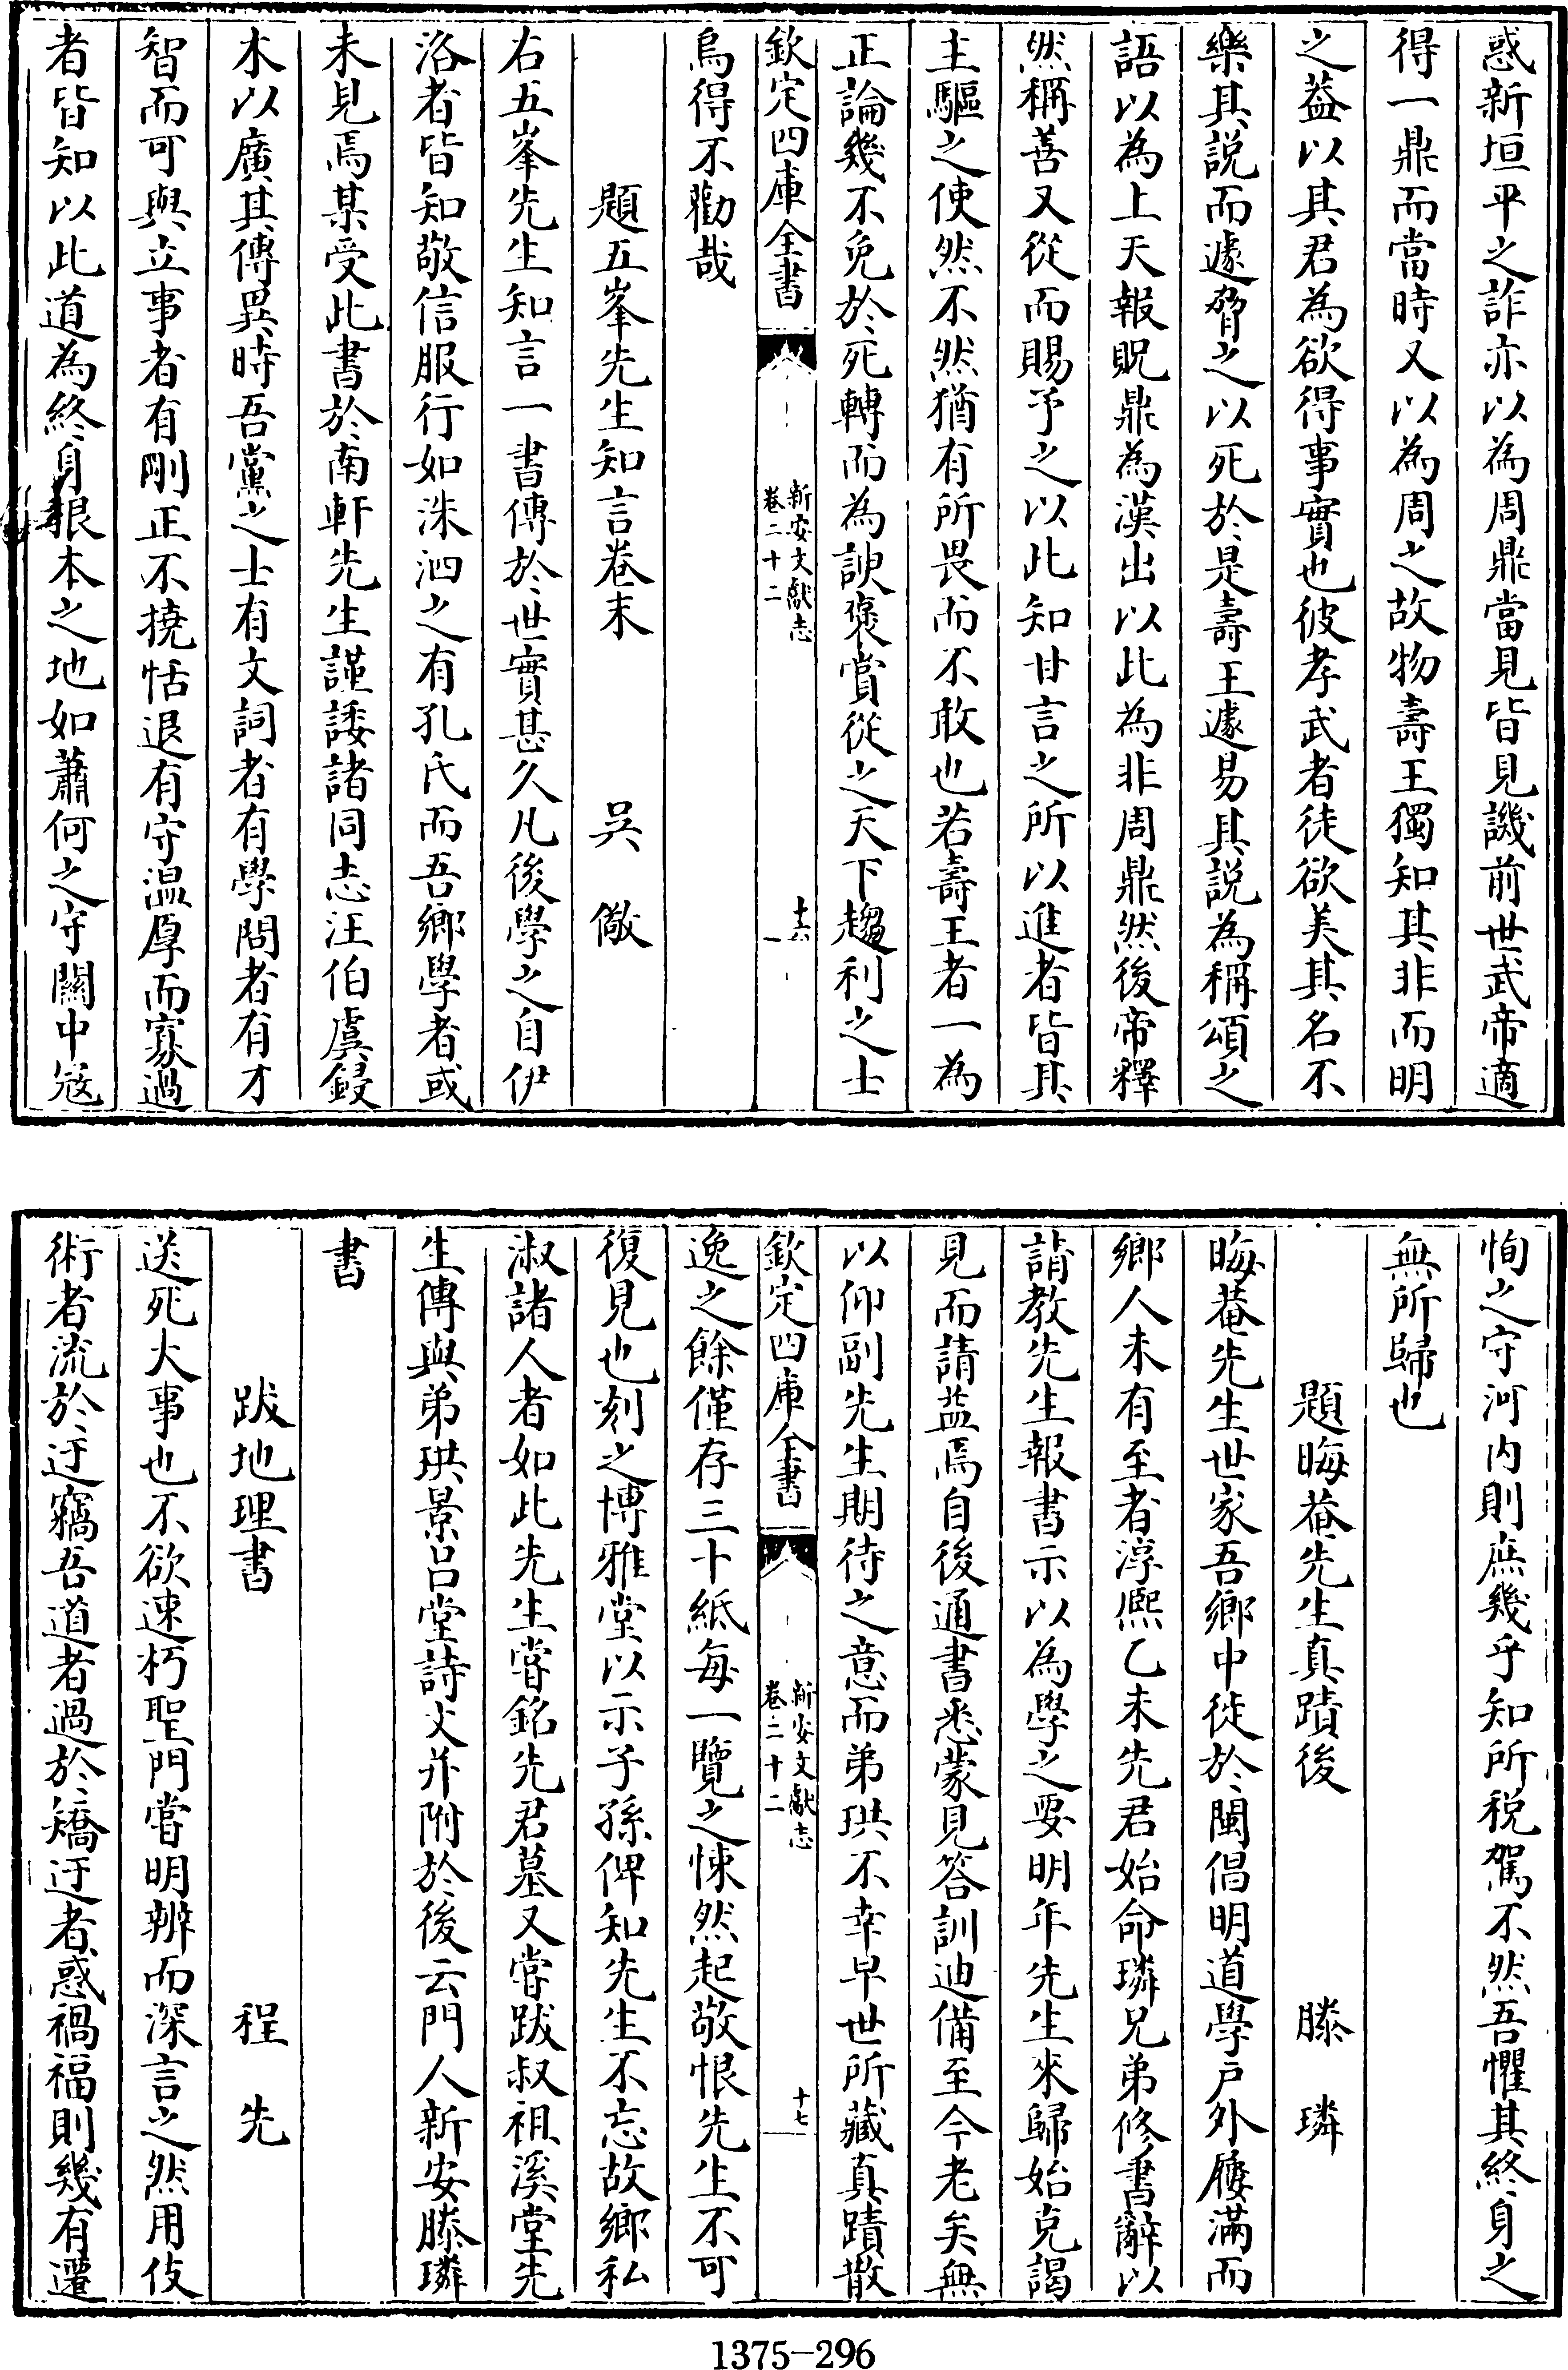 惑新垣平之詐亦以為周鼎當見皆見譏前世武帝適
得一鼎而當時又以為周之故物壽王獨知其非而明
之葢以其君為欲得事實也彼孝武者徒欲美其名不
樂其説而遽脅之以死於是壽王遽易其説為稱頌之
語以為上天報貺鼎為漢出以此為非周鼎然後帝釋
然稱善又從而賜予之以此知甘言之所以進者皆其
主驅之使然不然猶有所畏而不敢也若壽王者一為
正論幾不免於死轉而為諛褒賞從之天下趨利之士
欽定四庫全書
新安文獻志
卷二十二
十六
烏得不勸哉
題五峯先生知言卷末
吳儆
右五峯先生知言一書傳於世實甚久凡後學之自伊
洛者皆知敬信服行如洙泗之有孔氏而吾鄉學者或
未見焉某受此書於南軒先生謹諉諸同志汪伯虞鋟
木以廣其傳異時吾黨之士有文詞者有學問者有才
智而可與立事者有剛正不撓恬退有守温厚而寡過
者皆知以此道為終身根本之地如蕭何之守關中宼
恂之守河内則庶幾乎知所税駕不然吾懼其終身之
無所歸也
題晦菴先生真蹟後
滕璘
晦菴先生世家吾鄉中徙於閩倡明道學户外屨滿而
鄉人未有至者淳熙乙未先君始命璘兄弟修書辭以
請教先生報書示以為學之要明年先生來歸始克謁
見而請益焉自後通書悉蒙見答訓迪備至今老矣無
以仰副先生期待之意而弟珙不幸早世所藏真蹟散
欽定四庫全書
新安文獻志
卷二十二
十七
逸之餘僅存三十紙每一覽之悚然起敬恨先生不可
復見也刻之博雅堂以示子孫俾知先生不忘故鄉私
淑諸人者如此先生嘗銘先君墓又嘗跋叔祖溪堂先
生傳與弟珙景呂堂詩文并附於後云門人新安滕璘
書
跋地理書
程先
送死大事也不欲速朽聖門嘗明辨而深言之然用伎
術者流於迂竊吾道者過於矯迂者惑禍福則幾有遷
1375-296